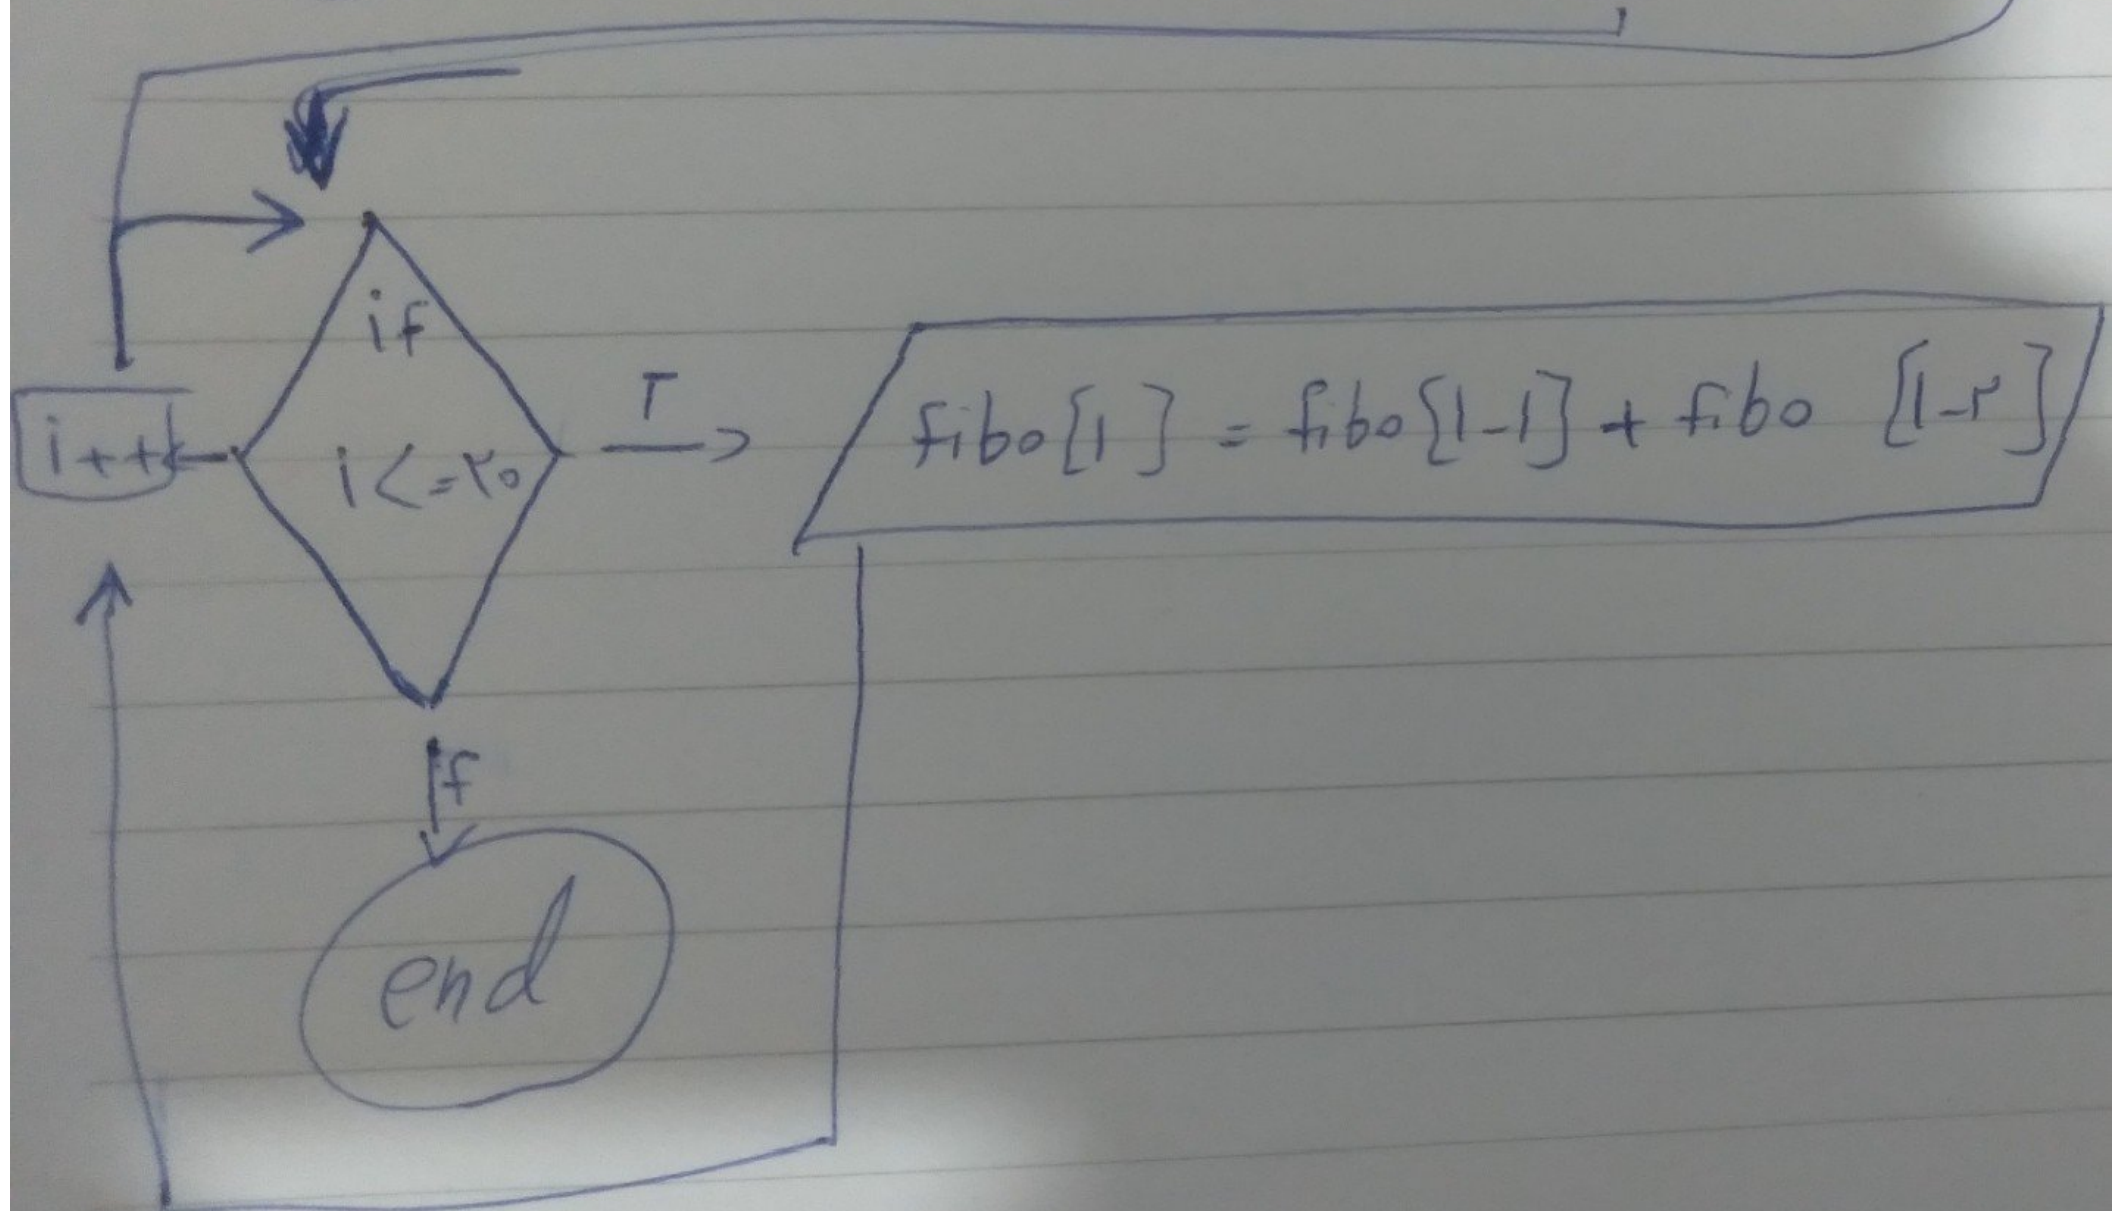 if
i<=۲۰
i++
T
fibo[1] = fibo[1-1] + fibo [1-۲]
f
end